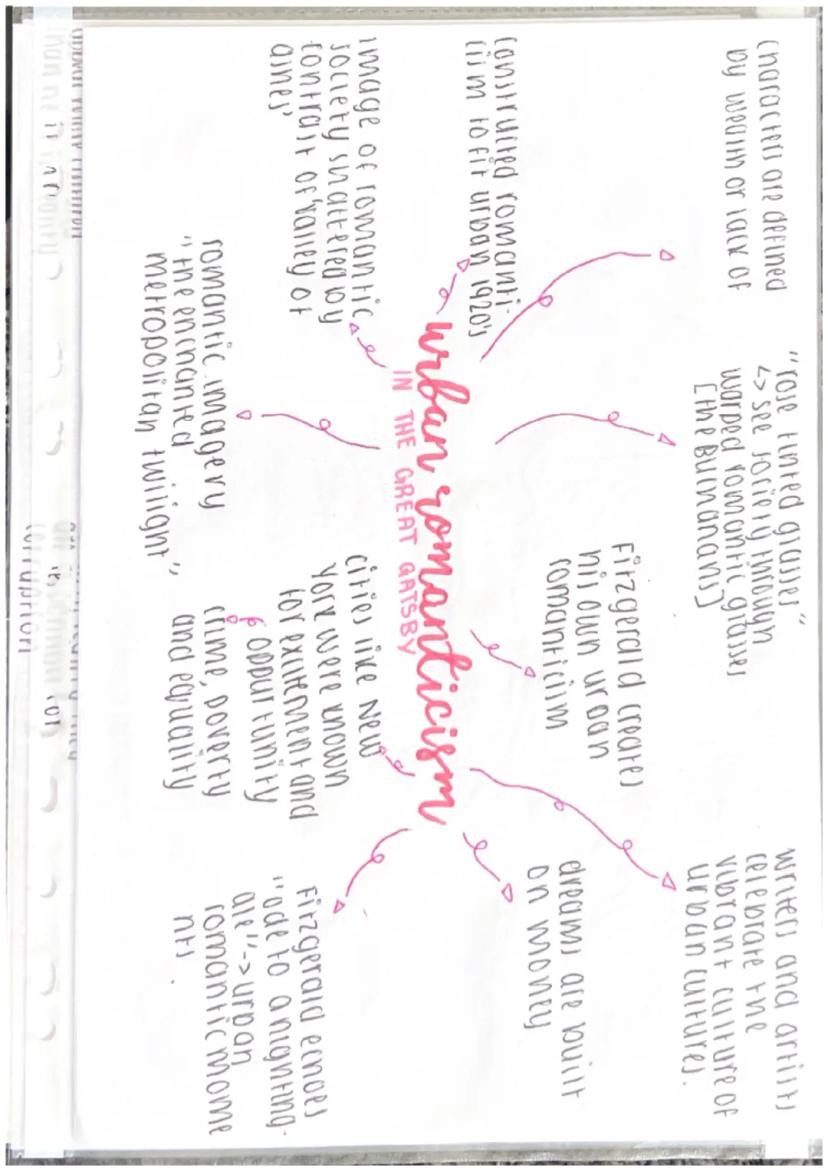 characters are defined
by wealth or lack of
"rose tinted glasses"
↳ see society through
warped romantic glasses
[the Buchanans]
writers and artists
celebrate the
vibrant culture of
urban cultures.
constructed romanti-
cism to fit urban 1920's
Fitzgerald creates
his own urban
romanticism
dreams are built
on money
urban romanticism
IN THE GREAT GATSBY
image of romantic
society shattered by
contrast of "valley of
ashes"
romantic imagery
"the enchanted
metropolitan twilight"
cities like New
York were known
for excitement and
oppurtunity
crime, poverty
and equality
Fitzgerald echoes
"ode to a nighting-
ale" -> urban
romantic mome
nts.
corruption